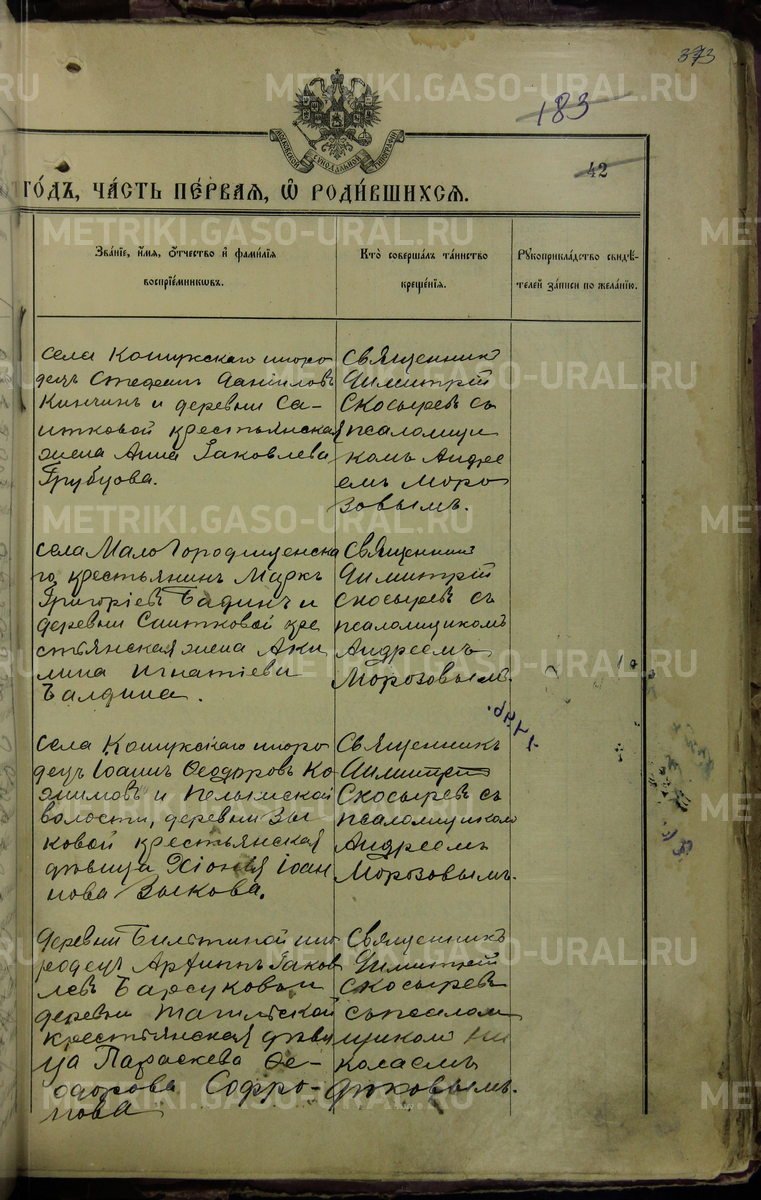 373
183
42
МОСКОВСКОЙ СѴНОДАЛЬНОЙ ТИПОГРАФІИ
ГО́ДЪ, ЧА́СТЬ ПЕ́РВАЯ, Ѿ РОДИ́ВШИХСЯ.
Зва́ніе, и́мя, о́тчество и҆ фами́лія
воспріе́мниковъ.
Кто̀ соверша́лъ та́инство
креще́нія.
Рꙋкоприкла́дство свидѣ́-
телей за́писи по жела́нію.
села Кошукскаго иноро-
децъ Стефанъ Данiиловъ
и деревни Са-
итковой крестьянская
жена Анна Iаковлева
Трубцова.
Священникъ
Димитрій
Скосыревъ съ
псаломщи
комъ Андре
емъ Моро
зовымъ.
села МалоГородищенска
го, крестьянинъ Маркъ
Григоріевъ и
деревни Саитковой кре
стьянская жена Аки
лина Игнатіева
Балдина.
Священникъ
Димитрій
Скосыревъ съ
псаломщикомъ
Андреемъ
Морозовымъ.
села Кошукскаго иноро-
децъ Іоаннъ Ѳеодоровъ Ко
жимовъ и Пелымской
волости, деревни Зы
ковой крестьянская
дѣвица Хіонія Іоан
нова Зыкова.
Священникъ
Димитрій
Скосыревъ съ
псаломщиком
Андреемъ
Морозовымъ.
деревни ино
родецъ Архиппъ Iаков
левъ Барсуковъ и
деревни
крестьянская дѣви
ца Параскева Ѳе-
одорова Софро-
нова
Священникъ
Димитрій
Скосыревъ
съ псалом
щиком Ни
колаемъ
METRIKI.GASO-URAL.RU